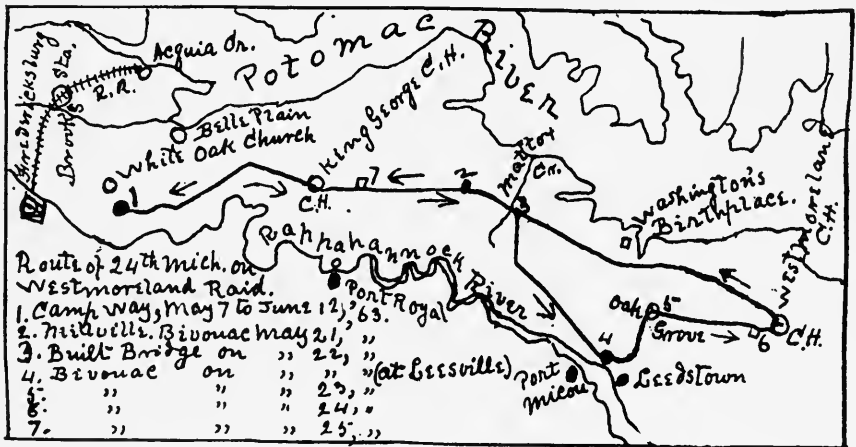 Potomac River
Acquia Cr.
Fredericksburg
Brooks Sta.
R.R.
Belle Plain
White Oak Church
King George C.H.
C.H.
1
7
2
Mattox
Cr.
3
Washington's
Birthplace.
Westmoreland
C.H.
Rappahannock River
Port Royal
Oak 5
Grove
6 C.H.
4
Leedstown
Port
Micou
Route of 24th Mich. on
Westmoreland Raid.
1. Camp Way, May 7 to June 12, '63.
2. Millville. Bivouac May 21, "
3. Built Bridge on " 22, "
4. Bivouac on " " (at Leesville)
5. " " " 23, "
6. " " " 24, "
7. " " " 25, "